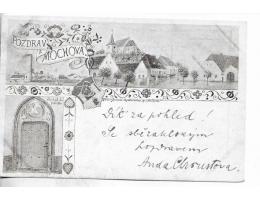 POZDRAV
Z MOCHOVA
Dík za pohled!
Se srdečným
pozdravem
Anda Chroustova.